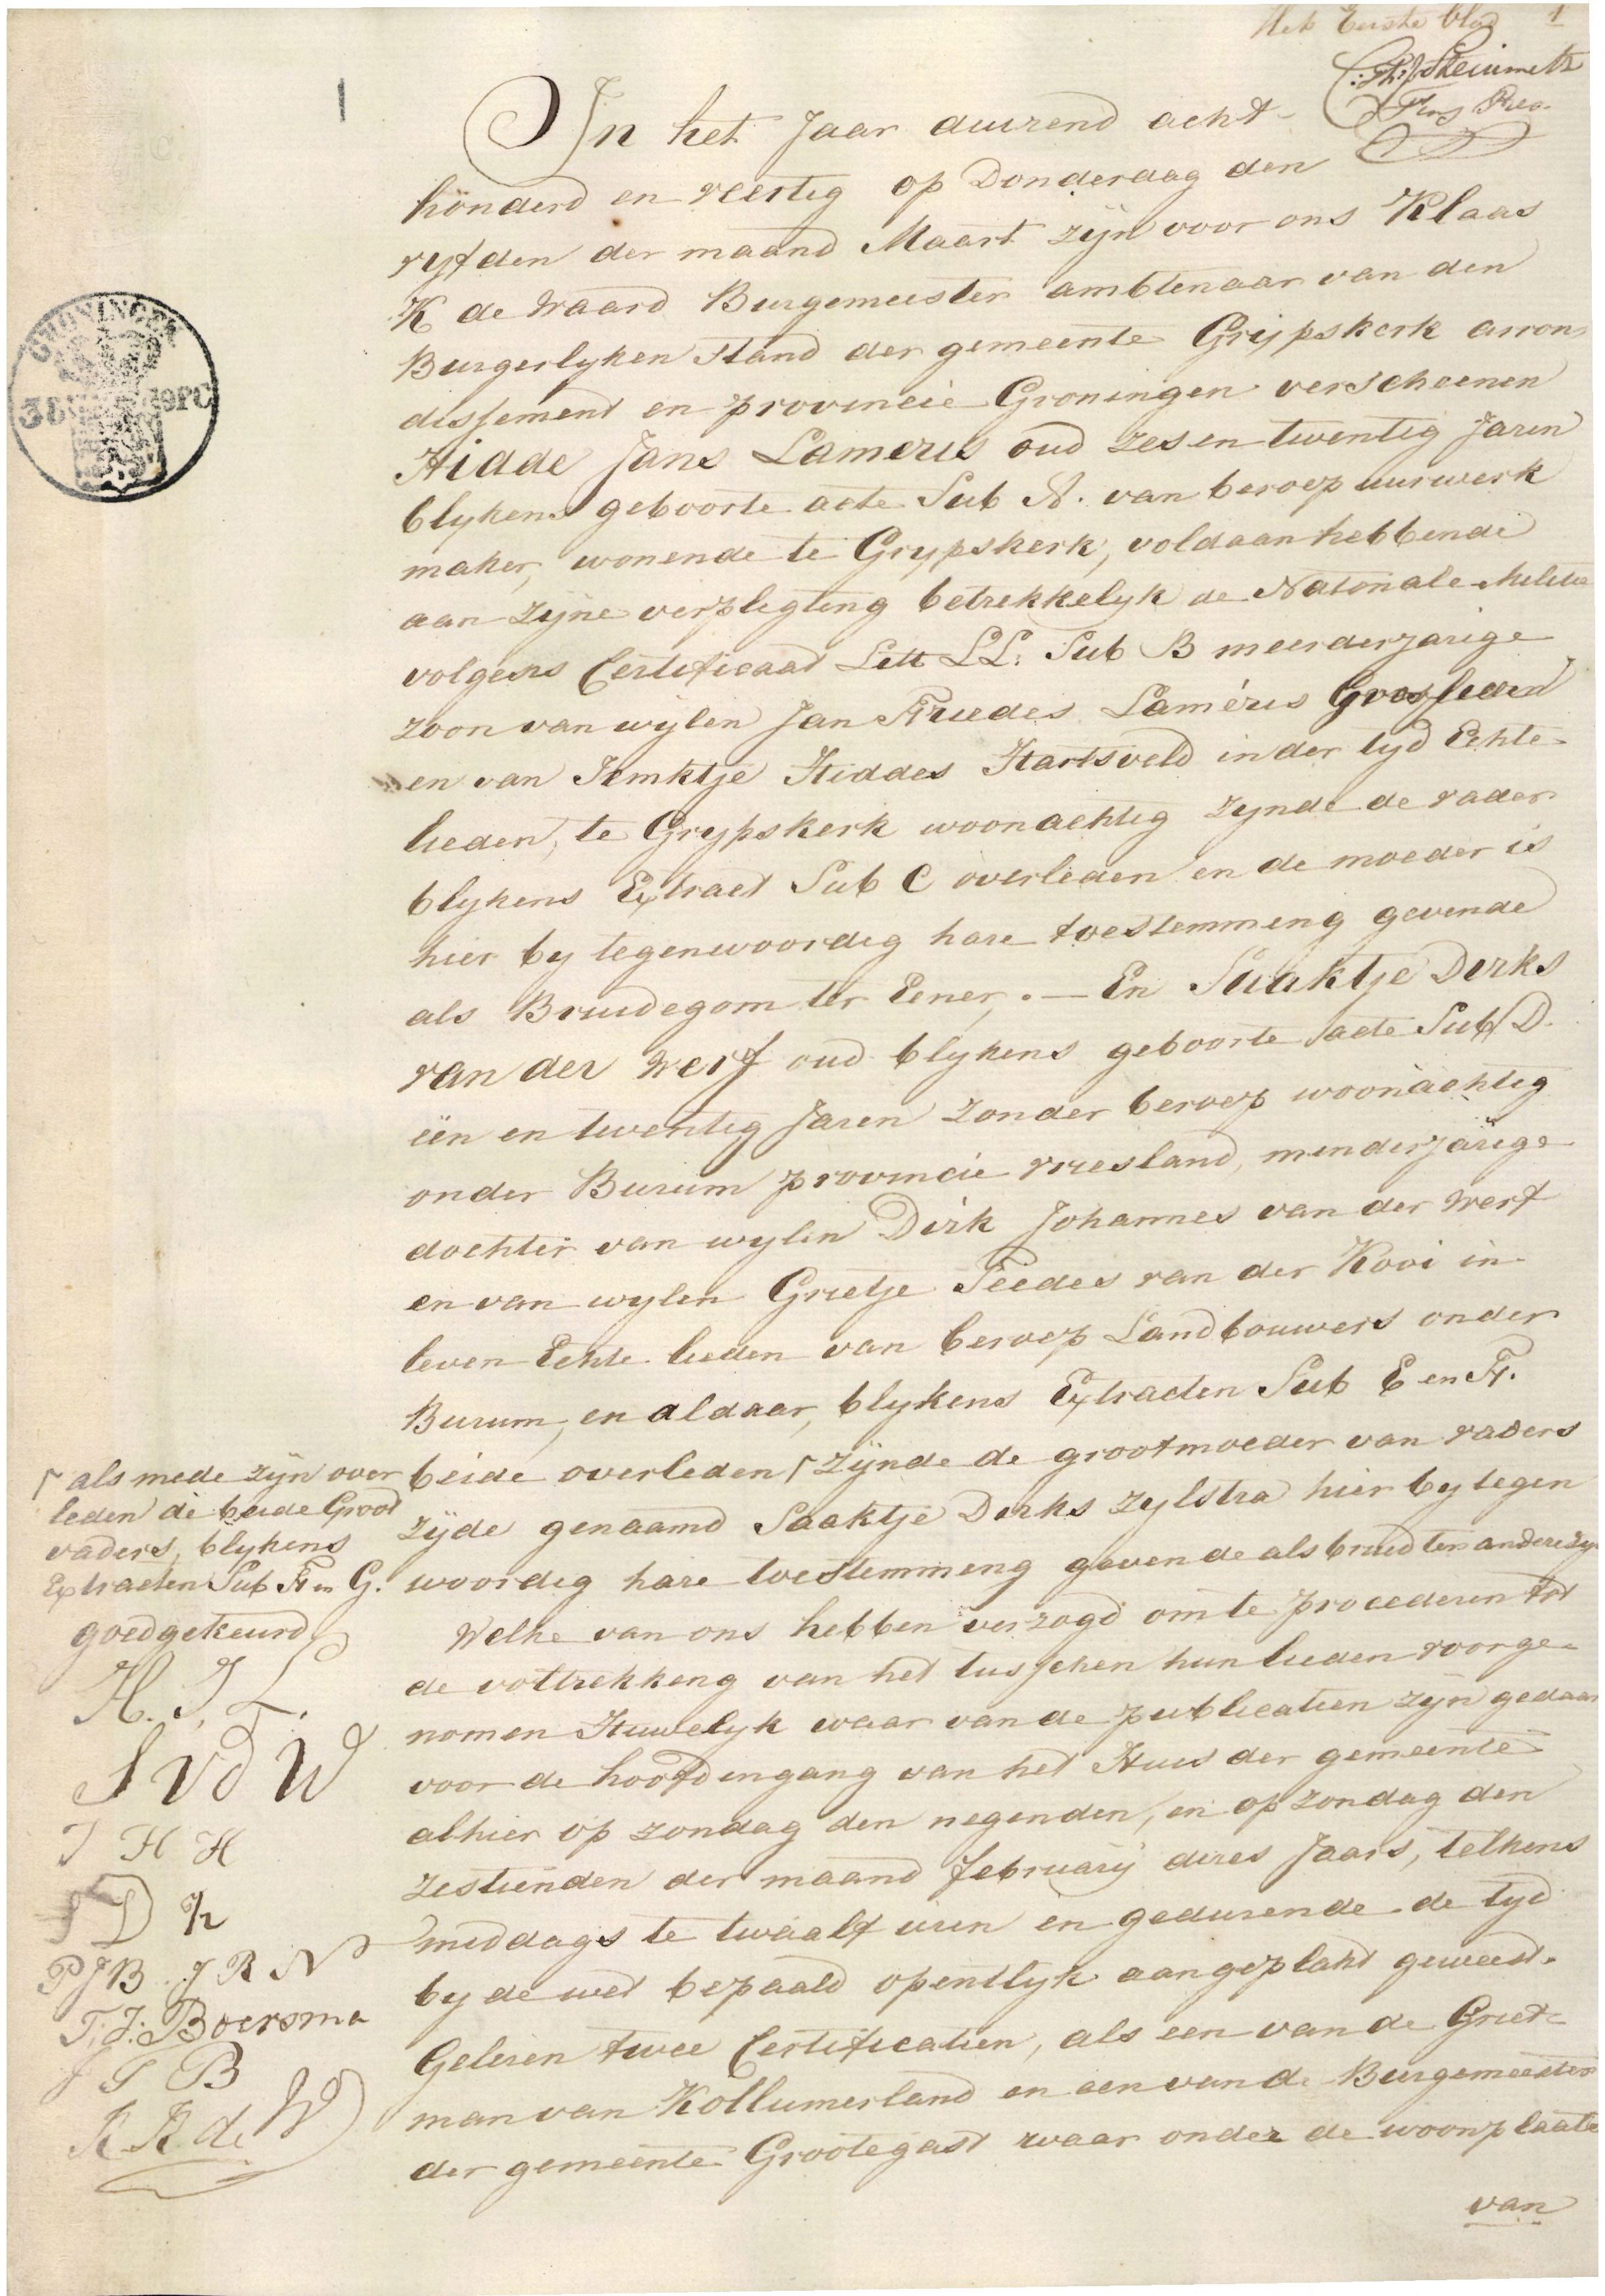 Het Eerste blad 1
C: Ph: J: Steinmetz
1
In het Jaar duizend acht-
honderd en veertig op Donderdag den
vyfden der maand Maart zyn voor ons Klaas
K de Waard Burgemeester ambtenaar van den
Burgerlyken Stand der gemeente Grypskerk arron
dissement en provincie Groningen verscheenen
Hidde Jans Lamerus oud zes en twentig Jaren
blykens geboorte acte Sub A. van beroep uurwerk
maker, wonende te Grypskerk, voldaan hebbende
aan zyne verpligting betrekkelyk de Nationale Militie
volgens Certificaat Lett LL: Sub B meerderjarige
zoon van wylen Jan Lamérus
en van Hiddes Hartsveld in der tyd Echte
lieden, te Grypskerk woonachtig zynde de vader
blykens Extract Sub C overleden en de moeder is
hier by tegenwoordig hare toestemming gevende
als Bruidegom ter Eener.— En Saaktje Derks
van der Werf oud blykens geboorte acte Sub D.
een en twentig Jaren zonder beroep woonachtig
onder Burum provincie vriesland, minderjarige
dochter van wylen Dirk Johannes van der Werf
en van wylen Grietje van der Kooi in
leven Echte lieden van beroep Landbouwers onder
Burum, en aldaar, blykens Extracten Sub E en F.
beide overleden ⌈ zynde de grootmoeder van vaders
zyde genaamd Saaktje Derks Zylstra hier by tegen
woordig hare toestemming gevende als bruid ter andere zy
Welke van ons hebben verzogd om te procederen tot
de voltrekking van het tusschen hun lieden voorge-
nomen Huwelyk waar van de publicatien zyn gedaan
voor de hoofdingang van het Huis der gemeente
alhier op zondag den negenden, en op zondag den
zestienden der maand february dezes Jaars, telkens
middags te twaalf uren en gedurende de tyd
by de wet bepaald openlyk aangeplakt geweest.
Gelezen twee Certificatien, als een van de Griet-
man van Kollumerland en een van de Burgemeester
der gemeente Grootegast waar onder de woonplaats
van
⌈ als mede zyn over
leden de beide Groot
vaders, blykens
Extracten Sub F en G.
goedgekeurd
H. J. L.
S v d W
J H H
S D
P J B J R N
T: J: Boersma
J S B
K K de W
GRONINGEN
38